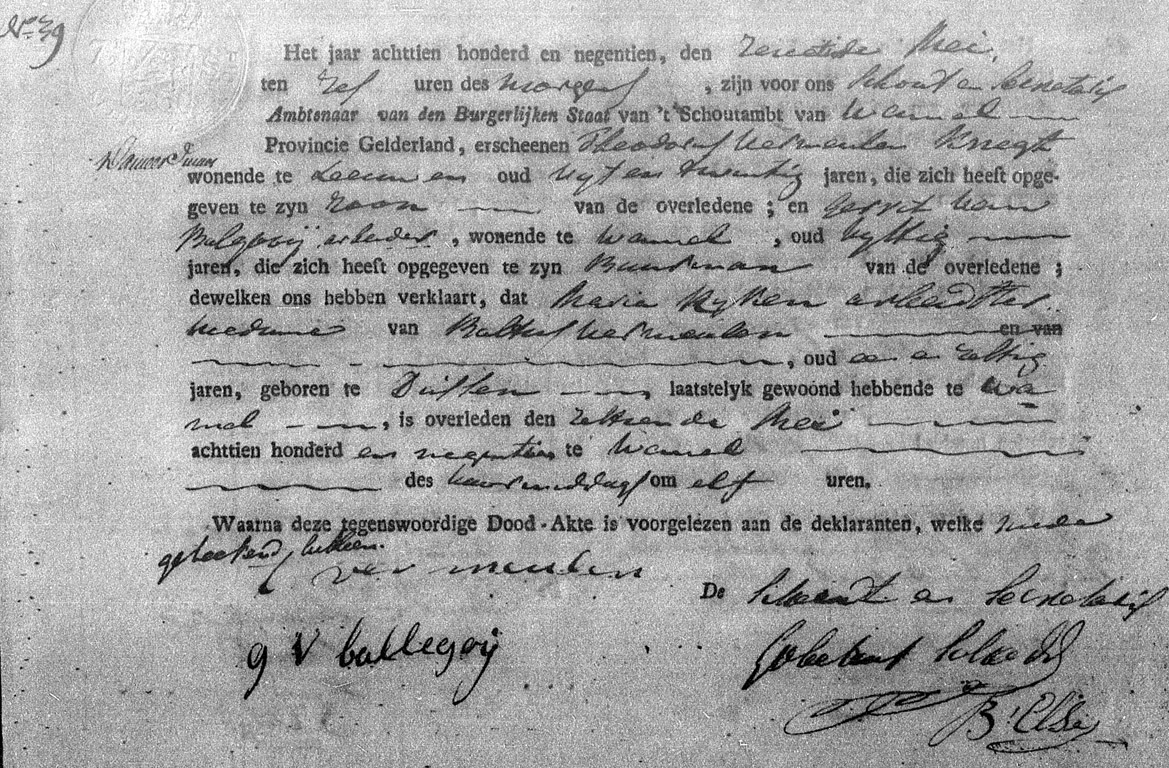 No 39
Het jaar achttien honderd en negentien, den Mei
ten uren des morgens, zijn voor ons Schout en Secretaris
Ambtenaar van den Burgerlijken Staat van 't Schoutambt van Wamel
Provincie Gelderland, erscheenen Theodorus Vermeulen Knegt
wonende te Leeuwen oud vyf en twentig jaren, die zich heeft opge-
geven te zyn zoon van de overledene; en Gerrit van
Balgooij arbeider, wonende te Wamel, oud vyftig
jaren, die zich heeft opgegeven te zyn Buurman van de overledene;
dewelken ons hebben verklaart, dat Maria Ryken arbeidster
weduwe van Balthus Vermeulen en van
, oud een en
jaren, geboren te Duitten laatstelyk gewoond hebbende te Wa-
mel, is overleden den Mei
achttien honderd en negentien te Wamel
des voormiddags om elf uren.
Waarna deze tegenswoordige Dood-Akte is voorgelezen aan de deklaranten, welke
geteekend hebben.
ver meulen
De Schout en Secretaris
g V ballegoij